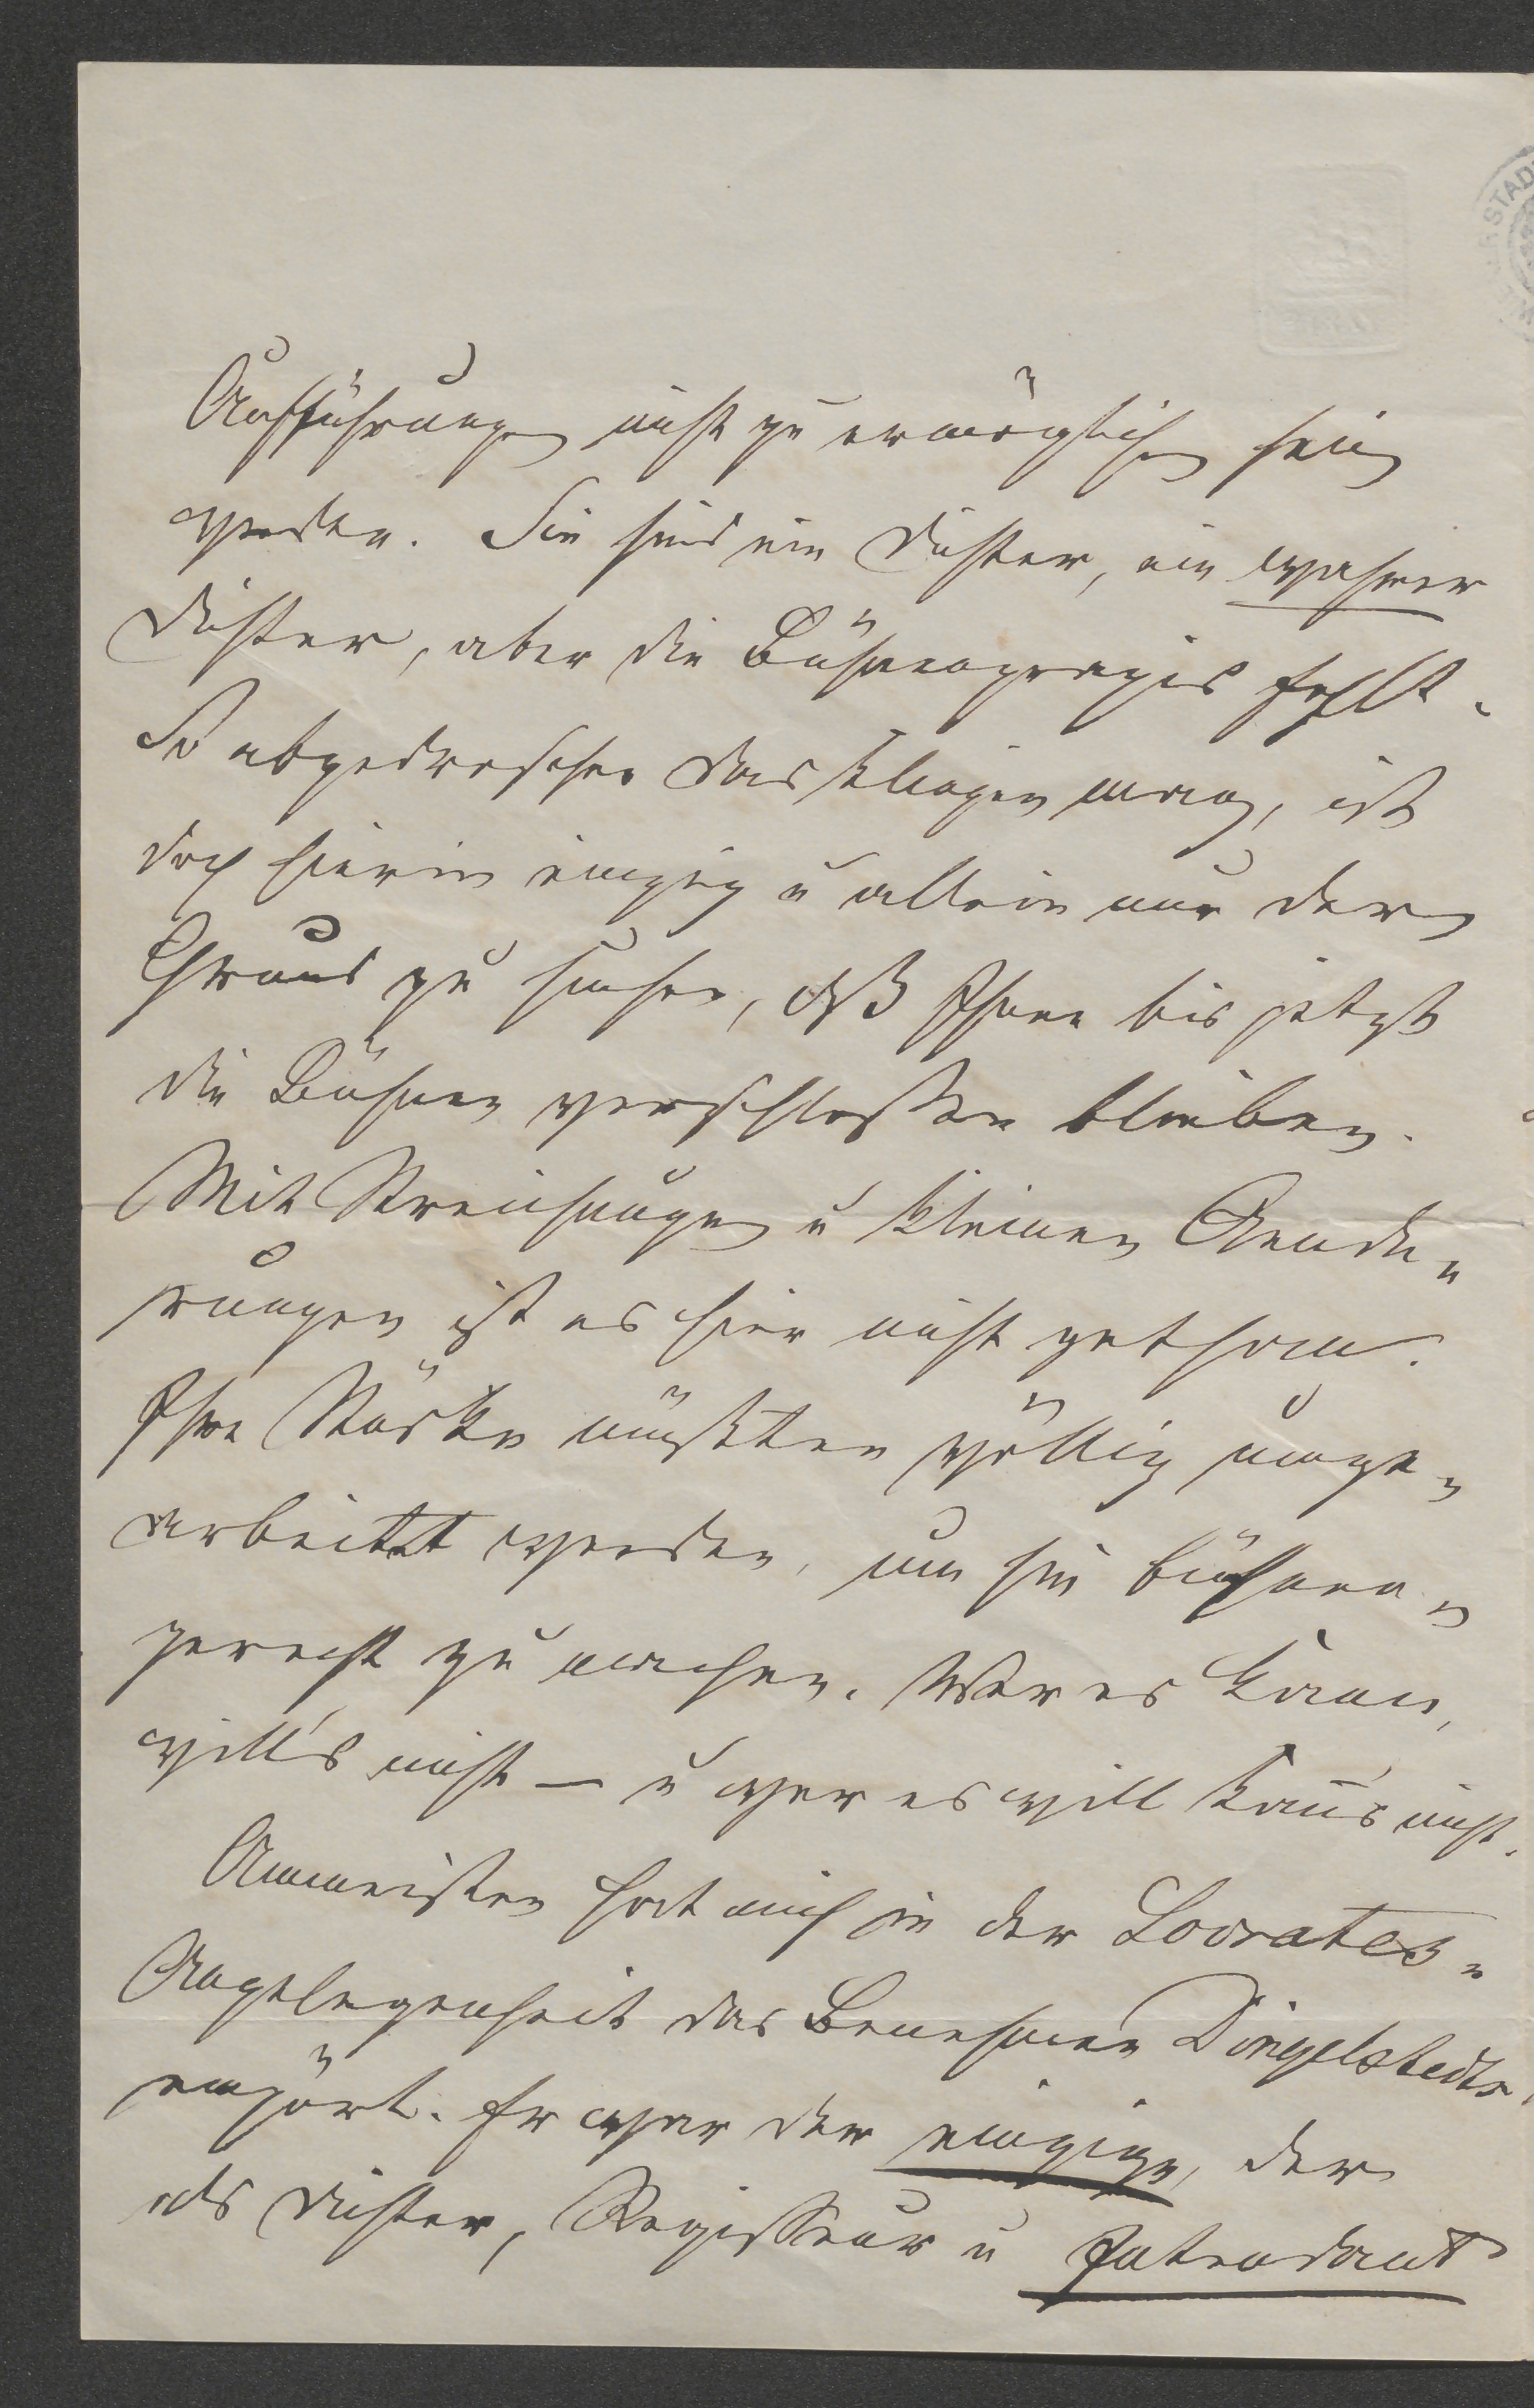 Aufführungen nicht zu ermöglichen sein
werden. Sie sind ein Dichter, ein wahrer
Dichter, aber die Bühnenpraxis fehlt.
So abgedroschen das klingen mag, ist
doch hierin einzig u allein nur der
Grund zu suchen, daß Ihnen bis jetzt
die Bühnen verschlossen blieben.
Mit Streichungen u kleinen Aende-
rungen ist es hier nicht gethan.
Ihre Stücke müßten völlig umge-
arbeitet werden, um sie bühnen-
gerecht zu machen. Wer es kann,
will's nicht – u wer es will kann's nicht.
Ammeisten hat mich in der Socrates-
Angelegenheit das Benehmen Dingelstedts
empört. Er war der einzige, der
als Dichter, Regisseur u Intendant
STAD